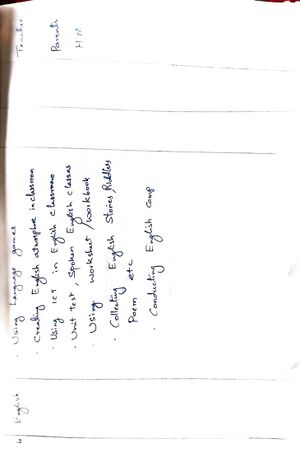 4. English
· Using Language games
· Creating English atmosphere in classroom
· Using ICT in English classroom
· Unit test, Spoken English classes
· Using Worksheet / workbook
· Collecting English Stories, Riddles
Poem etc
· Conducting English Camp
Teacher
Parents
H M